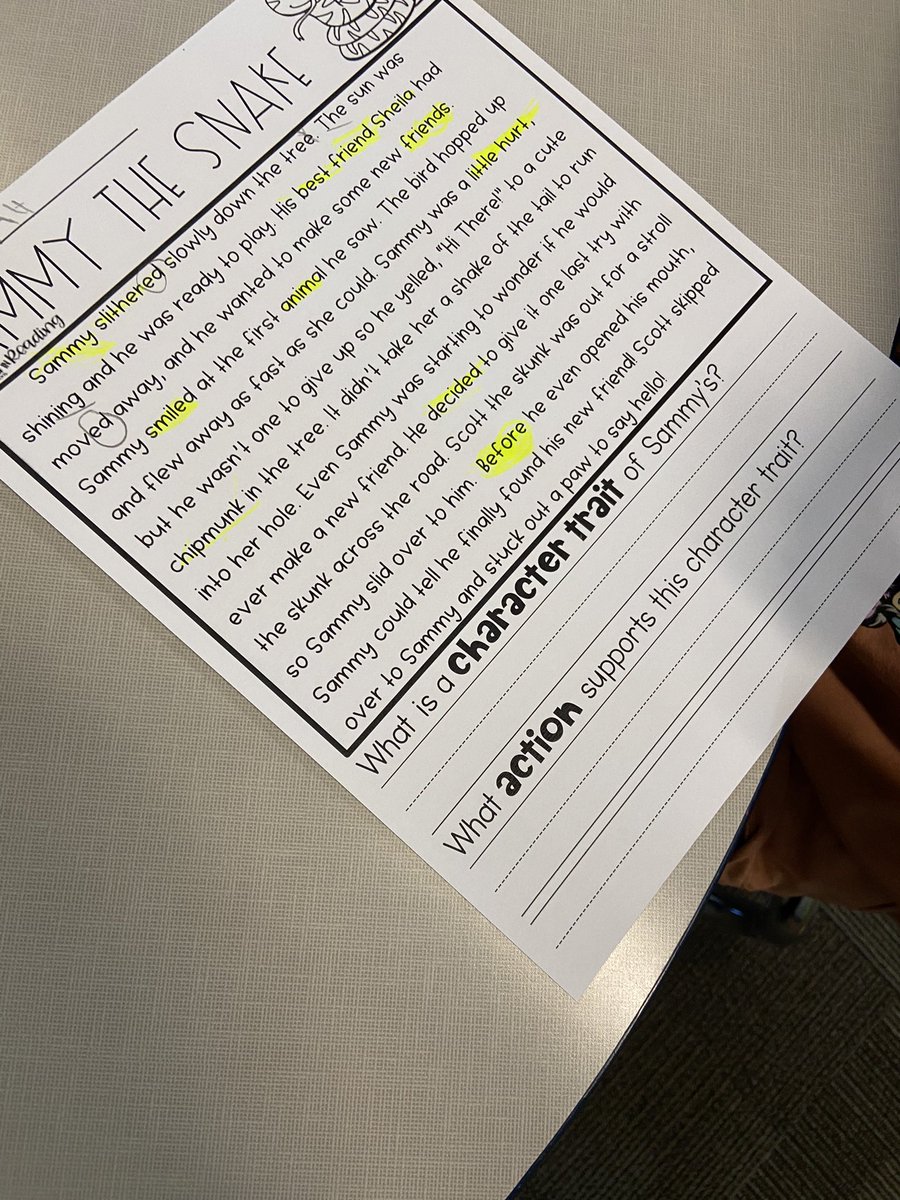 MMY THE SNAKE
Reading
Sammy slithered slowly down the tree. The sun was
shining and he was ready to play. His best friend Sheila had
moved away, and he wanted to make some new friends.
Sammy smiled at the first animal he saw. The bird hopped up
and flew away as fast as she could. Sammy was a little hurt,
but he wasn't one to give up so he yelled, "Hi There!" to a cute
chipmunk in the tree. It didn't take her a shake of the tail to run
into her hole. Even Sammy was starting to wonder if he would
ever make a new friend. He decided to give it one last try with
the skunk across the road. Scott the skunk was out for a stroll
so Sammy slid over to him. Before he even opened his mouth,
Sammy could tell he finally found his new friend! Scott skipped
over to Sammy and stuck out a paw to say hello!
What is a character trait of Sammy's?
What action supports this character trait?